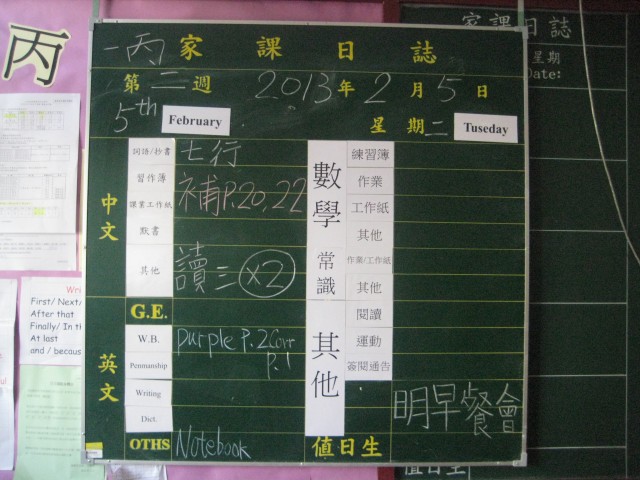 丙
一丙 家課日誌
第二週 2013年2月5日
5th February 星期二 Tuseday
中文
詞語/抄書 七行
習作簿 補P.20,22
課業工作紙
默書
其他 讀三 ×2
英文
G.E.
W.B. Purple P.2 Corr
P.1
Penmanship
Writing
Dict.
OTHS Notebook
數學
練習簿
作業
工作紙
其他
常識
作業/工作紙
其他
其他
閱讀
運動
簽閱通告
明早餐會
值日生
家課日誌
星期
Date:
值日生
First/ Next/
After that
Finally/ In th
At last
and / becaus